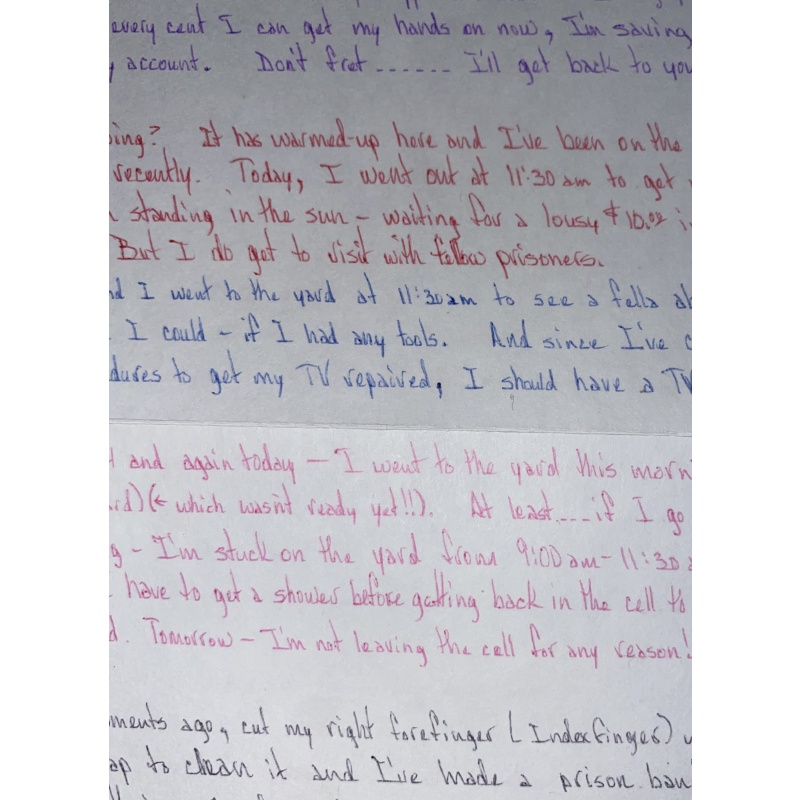 every cent I can get my hands on now, I'm saving
account. Don't fret...... I'll get back to you
ing? It has warmed-up here and I've been on the
recently. Today, I went out at 11:30 am to get
standing in the sun - waiting for a lousy $10.00 i
But I do get to visit with fellow prisoners.
d I went to the yard at 11:30am to see a fella a
I could - if I had any tools. And since I've
dures to get my TV repaired, I should have a TV
and again today - I went to the yard this morn
rd) (← which wasn't ready yet!!). At least....if I go
g - I'm stuck on the yard from 9:00am-11:30
have to get a shower before getting back in the cell to
d. Tomorrow - I'm not leaving the cell for any reason!
ments ago, cut my right forefinger (Indexfinger)
ap to clean it and I've made a prison ban